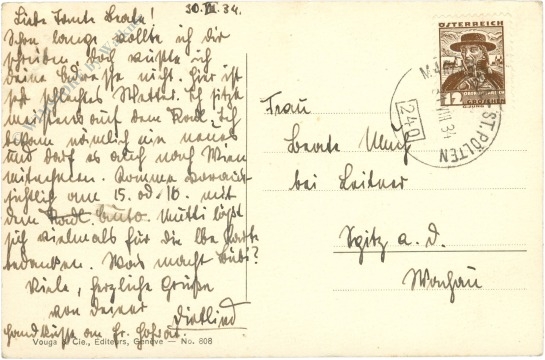 30.VII.34.
Liebe Tante Beate!
Schon lange wollte ich dir
schreiben, doch wußte ich
deine Adresse nicht. Hier ist
sehr schlechtes Wetter. Ich sitze
meistens auf dem Radl. Ich
bekam nämlich ein neues
und darf es auch nach Wien
mitnehmen. Komme voraus-
sichtlich am 15. od. 16. mit
dem Auto. Mutti läßt
sich vielmals für die lbe Karte
bedanken. Was macht Bubi?
Viele, herzliche Grüße
von deiner
Dietlind
Handküsse an Fr.
Vouga & Cie., Editeurs, Genève — No. 808
ÖSTERREICH
12 GROSCHEN
ST. PÖLTEN
240
Frau
Beate
bei Leitner
Spitz a. d.
Wachau